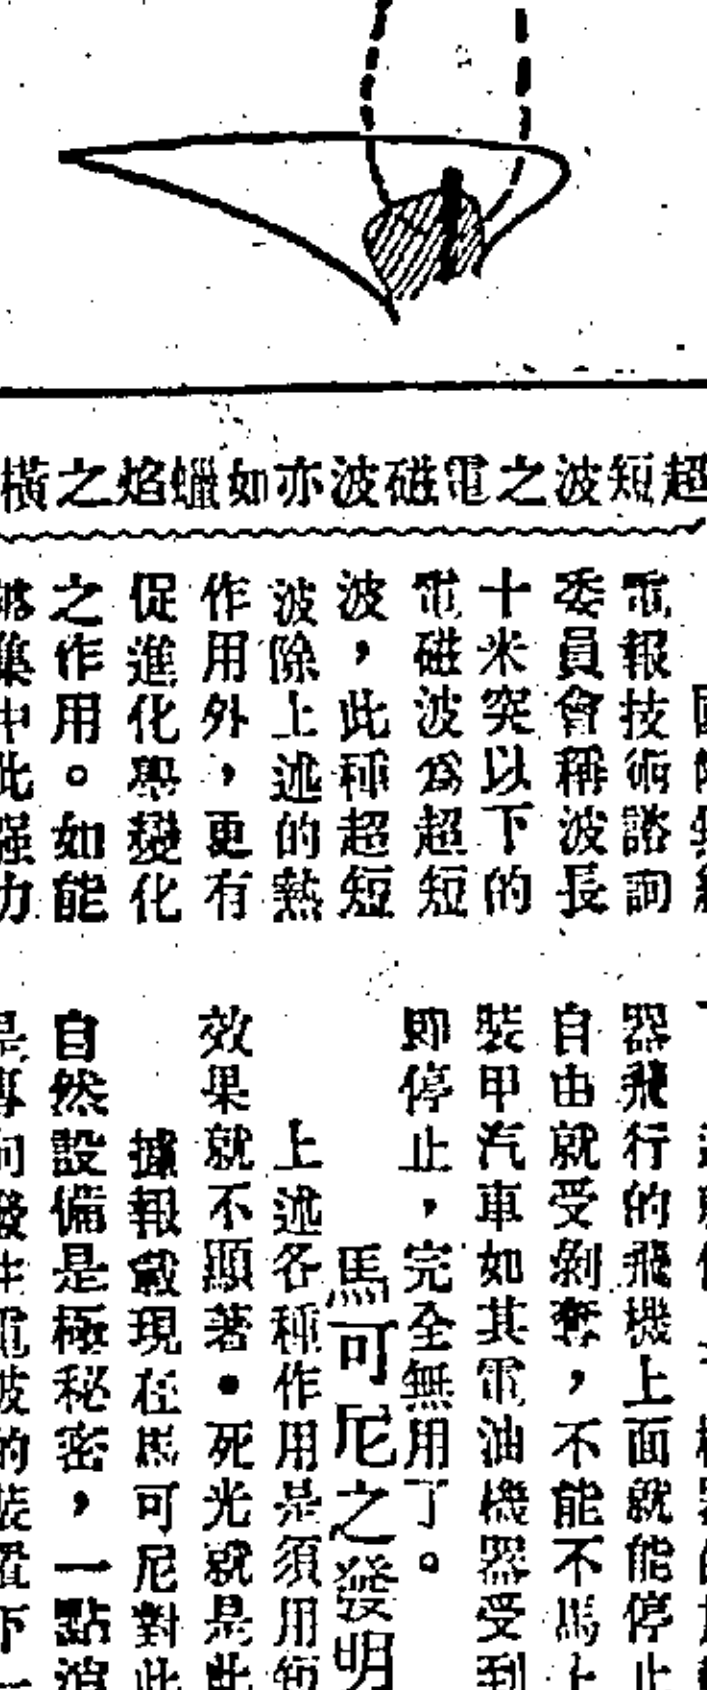 超短波之電磁波亦如蠟焰之橫
電報技術諮詢
委員會稱波長
十米突以下的
電磁波為超短
波，此種超短
波除上述的熱
作用外，更有
促進化學變化
之作用。如能
集中此强力
器飛行的飛機上面就能停止
自由就受剝奪，不能不馬上
裝甲汽車如其電油機器受到
即停止，完全無用了。
馬可尼之發明
上述各種作用是須用短
效果就不顯著。死光就是此
據報載現在馬可尼對此
自然設備是極秘密，一點消
電波的裝置下一